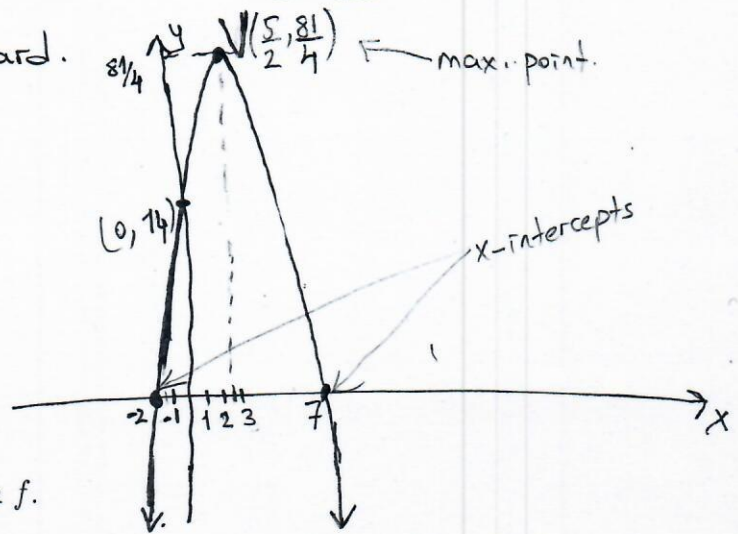 ard.
y
V(5/2, 81/4)
max. point.
81/4
(0, 14)
x-intercepts
-2 -1 1 2 3 7 x
f.